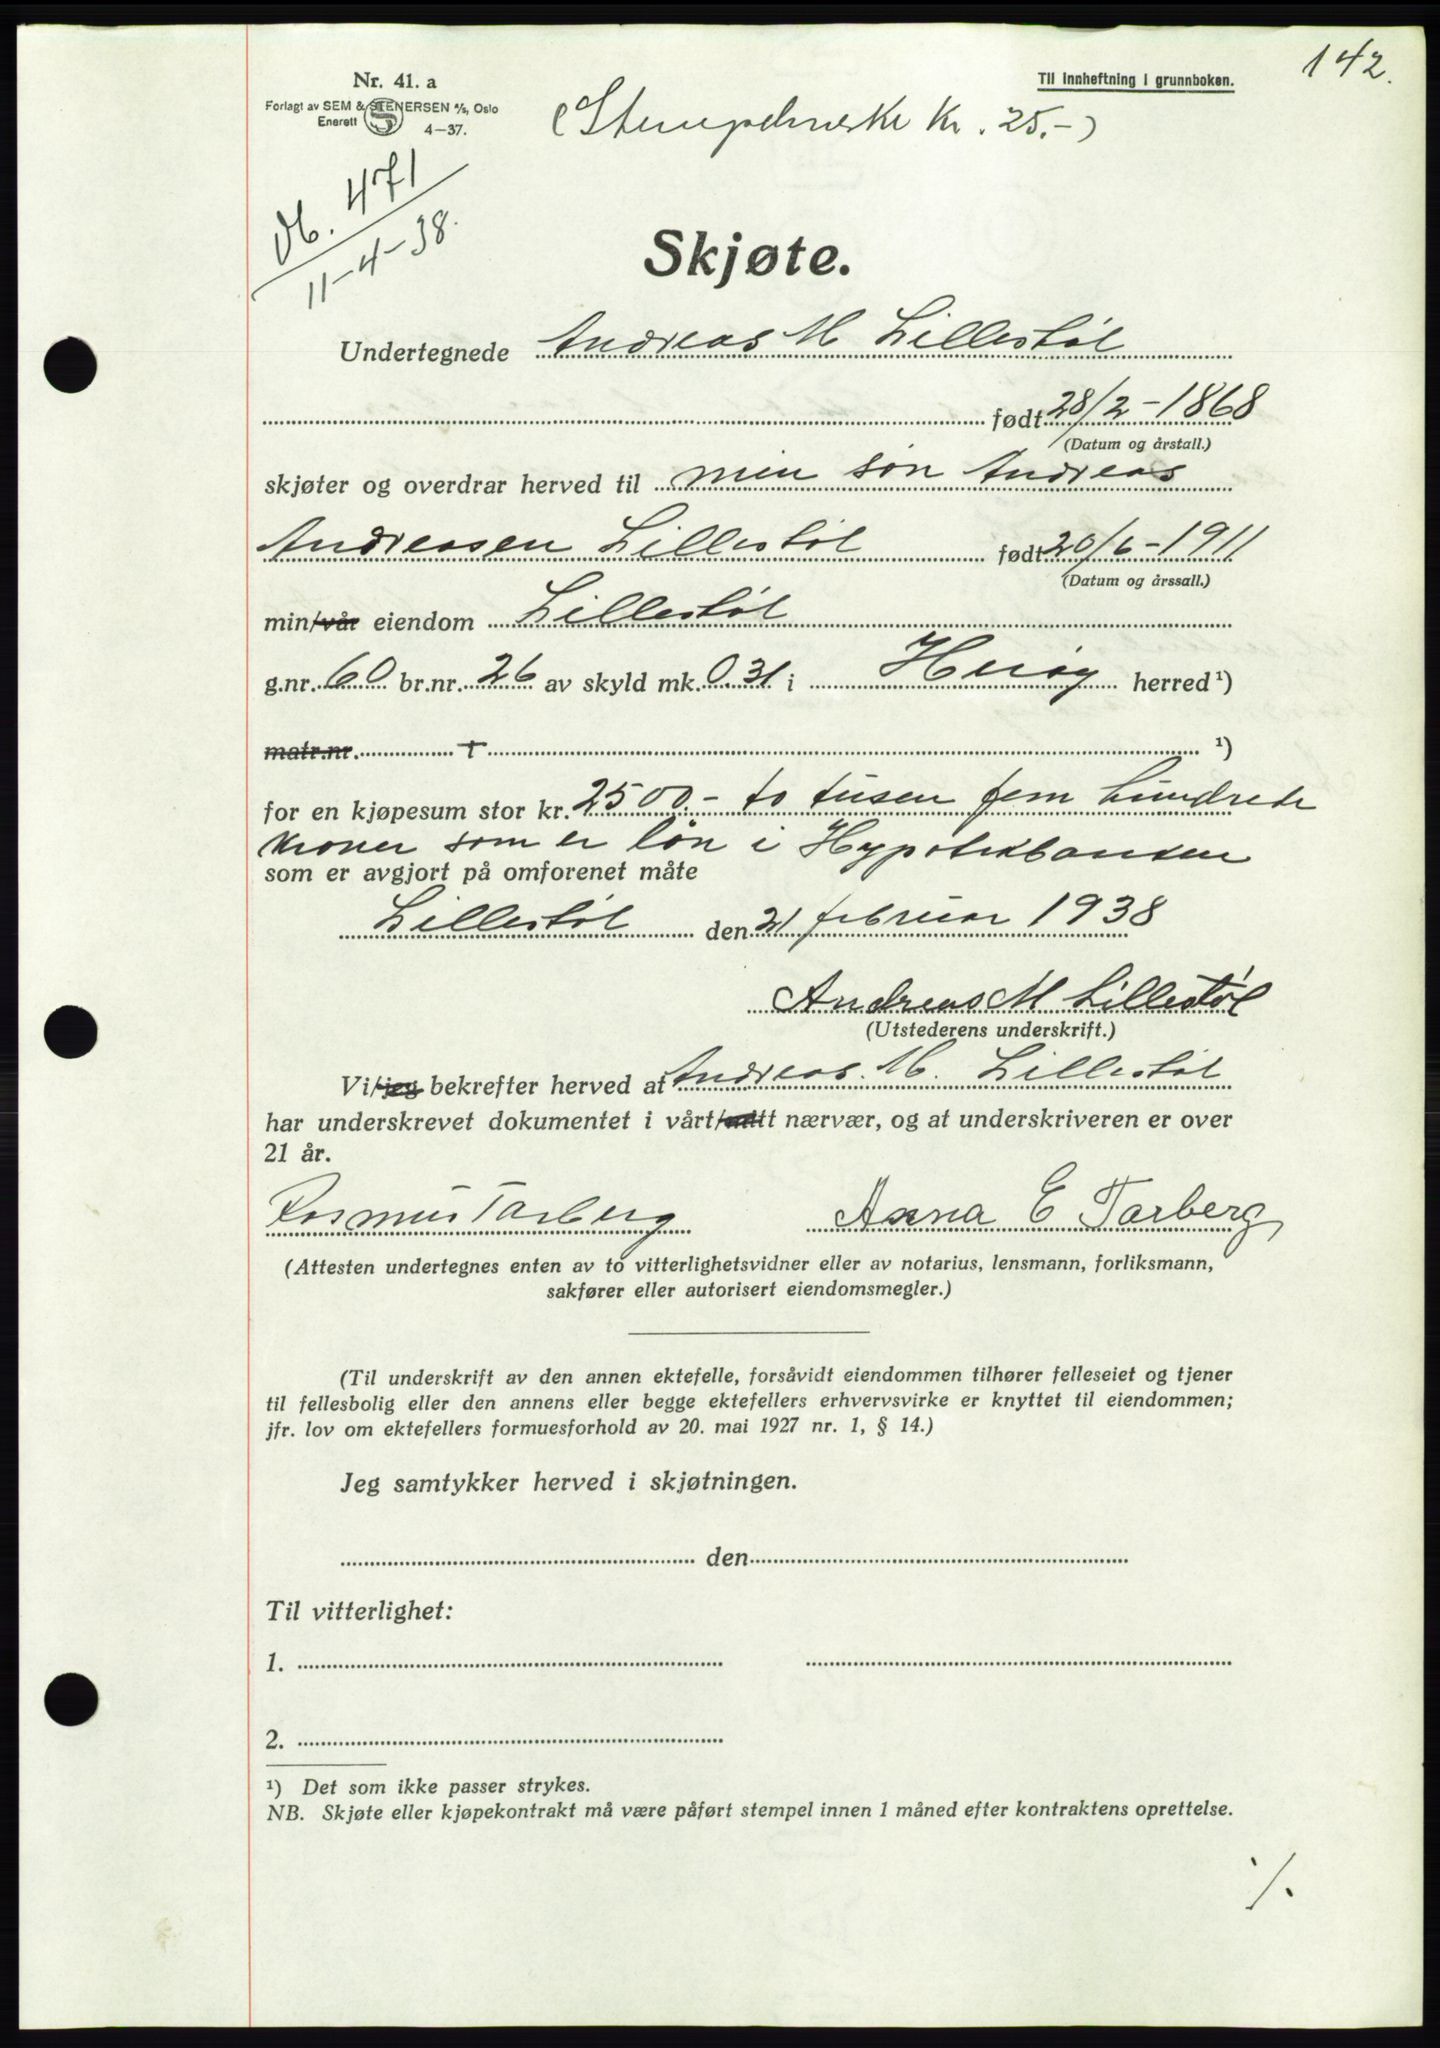 142.
Nr. 41. a
Til innheftning i grunnboken.
Forlagt av SEM & STENERSEN A/S, Oslo
Enerett 4—37.
(Stempelmerke Kr. 25.-)
Db. 471
11-4-38.
Skjøte.
Undertegnede Andreas M Lillestøl
født 28/2-1868
(Datum og årstall.)
skjøter og overdrar herved til min søn Andreas
Andreasen Lillestøl født 20/6-1911
(Datum og årssall.)
min/vår eiendom Lillestøl
g.nr. 60 br.nr. 26 av skyld mk. 0.31 i Herøy herred ¹)
matr.nr. ¹)
for en kjøpesum stor kr. 2500.- to tusen fem hundrede
kroner som er lån i Hypotekbanken
som er avgjort på omforenet måte
Lillestøl den 21 februar 1938
Andreas M Lillestøl
(Utstederens underskrift.)
Vi/jeg bekrefter herved at Andreas. M. Lillestøl
har underskrevet dokumentet i vårt/mitt nærvær, og at underskriveren er over
21 år.
Rasmus Tarberg Anna E Tarberg
(Attesten undertegnes enten av to vitterlighetsvidner eller av notarius, lensmann, forliksmann,
sakfører eller autorisert eiendomsmegler.)
(Til underskrift av den annen ektefelle, forsåvidt eiendommen tilhører felleseiet og tjener
til fellesbolig eller den annens eller begge ektefellers erhvervsvirke er knyttet til eiendommen;
jfr. lov om ektefellers formuesforhold av 20. mai 1927 nr. 1, § 14.)
Jeg samtykker herved i skjøtningen.
den
Til vitterlighet:
1.
2.
¹) Det som ikke passer strykes.
NB. Skjøte eller kjøpekontrakt må være påført stempel innen 1 måned efter kontraktens oprettelse.
./.